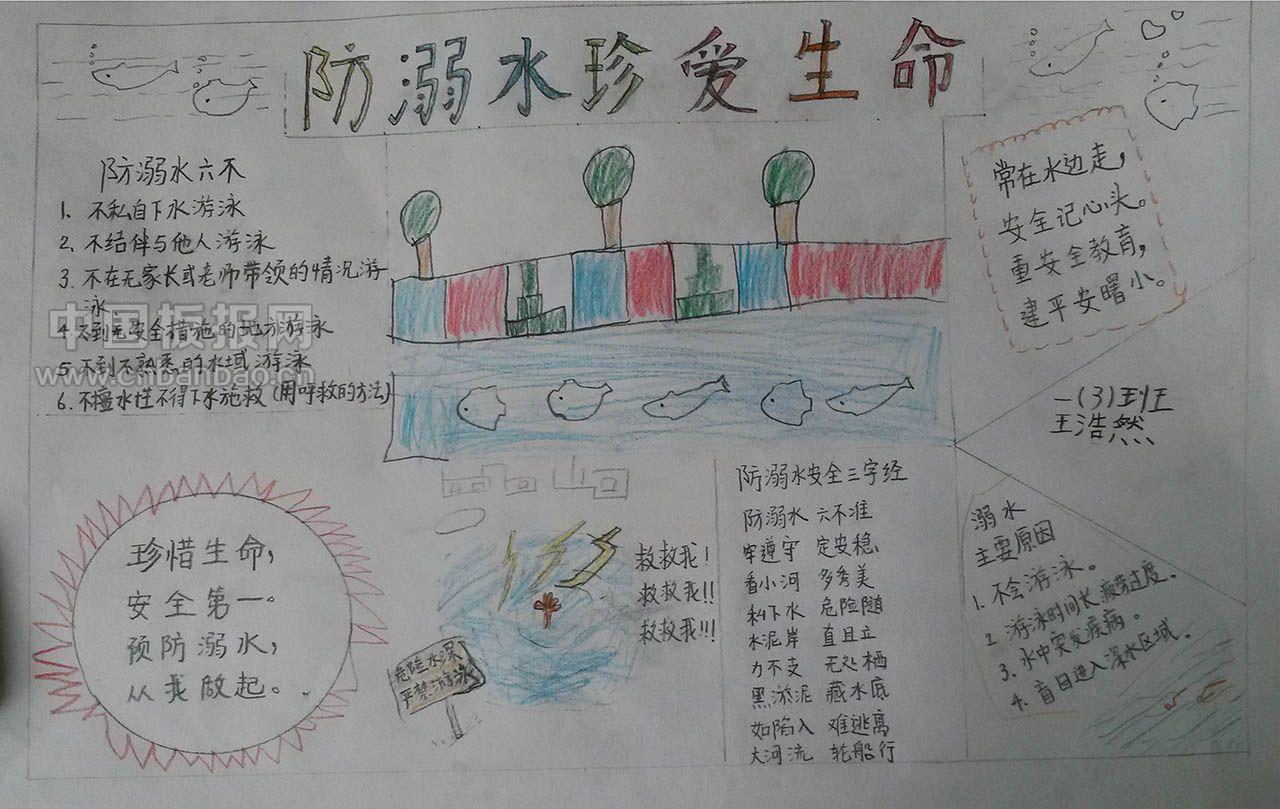 防溺水珍爱生命
防溺水六不
1、不私自下水游泳
2、不结伴与他人游泳
3、不在无家长或老师带领的情况游
泳
4、不到无安全措施的地方游泳
5、不到不熟悉的水域游泳
6、不擅水性不得下水施救(用呼救的方法)
中国板报网
www.cnbanbao.cn
常在水边走，
安全记心头。
重安全教育，
建平安曙小。
一(3)班
王浩然
珍惜生命，
安全第一。
预防溺水，
从我做起。
危险水深
严禁游泳
救救我！
救救我!!
救救我!!!
防溺水安全三字经
防溺水 六不准
牢遵守 定安稳
看小河 多秀美
私下水 危险随
水泥岸 直且立
力不支 无处栖
黑淤泥 藏水底
如陷入 难逃离
大河流 轮船行
溺水
主要原因
1、不会游泳。
2、游泳时间长,疲劳过度。
3、水中突发疾病。
4、盲目进入深水区域。